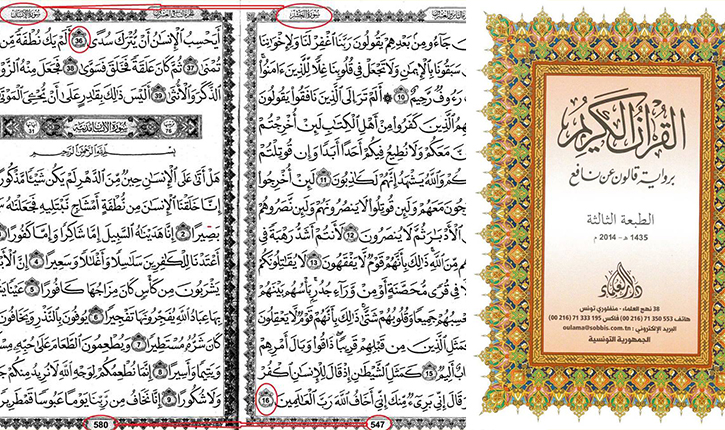 القرآن الكريم
برواية قالون عن نافع
الطبعة الثالثة
1435 هـ - 2014 م
دار العلماء
38 نهج العلماء - منفلوري تونس
هاتف 553 350 71 (216 00) فاكس 195 333 71 (216 00)
البريد الإلكتروني : oulama@sobbis.com.tn
الجمهورية التونسية
سورة الحشر
جاءو من بعدهم يقولون ربنا اغفر لنا ولإخواننا
سبقونا بالإيمان ولا تجعل في قلوبنا غلا للذين ءامنوا
رءوف رحيم 10 ألم تر إلى الذين نافقوا يقولون
الذين كفروا من أهل الكتاب لئن أخرجتم
معكم ولا نطيع فيكم أحدا أبدا وإن قوتلتم
كم والله يشهد إنهم لكاذبون 11 لئن أخرجوا
معهم ولئن قوتلوا لا ينصرونهم ولئن نصروهم
الأدبار ثم لا ينصرون 12 لأنتم أشد رهبة في
من الله ذلك بأنهم قوم لا يفقهون 13 لا يقاتلونكم
في قرى محصنة أو من وراء جدر بأسهم بينهم
جميعا وقلوبهم شتى ذلك بأنهم قوم لا يعقلون
الذين من قبلهم قريبا ذاقوا وبال أمرهم
أليم 15 كمثل الشيطان إذ قال للإنسان اكفر
قال إني بريء منك إني أخاف الله رب العالمين 16
547
سورة الإنسان
أيحسب الإنسان أن يترك سدى 36 ألم يك نطفة من
تمنى 37 ثم كان علقة فخلق فسوى 38 فجعل منه الزو
الذكر والأنثى 39 أليس ذلك بقادر على أن يحيي الموتى
سورة الإنسان مدنية
بسم الله الرحمن الرحيم
هل أتى على الإنسان حين من الدهر لم يكن شيئا مذكور
إنا خلقنا الإنسان من نطفة أمشاج نبتليه فجعلناه س
بصيرا 2 إنا هديناه السبيل إما شاكرا وإما كفورا
أعتدنا للكافرين سلاسلا وأغلالا وسعيرا إن الأ
يشربون من كأس كان مزاجها كافورا عينا ي
بها عباد الله يفجرونها تفجيرا يوفون بالنذر ويخافون
كان شره مستطيرا ويطعمون الطعام على حبه م
ويتيما وأسيرا إنما نطعمكم لوجه الله لا نريد منكم ج
ولا شكورا إنا نخاف من ربنا يوما عبوسا قمطرير
580